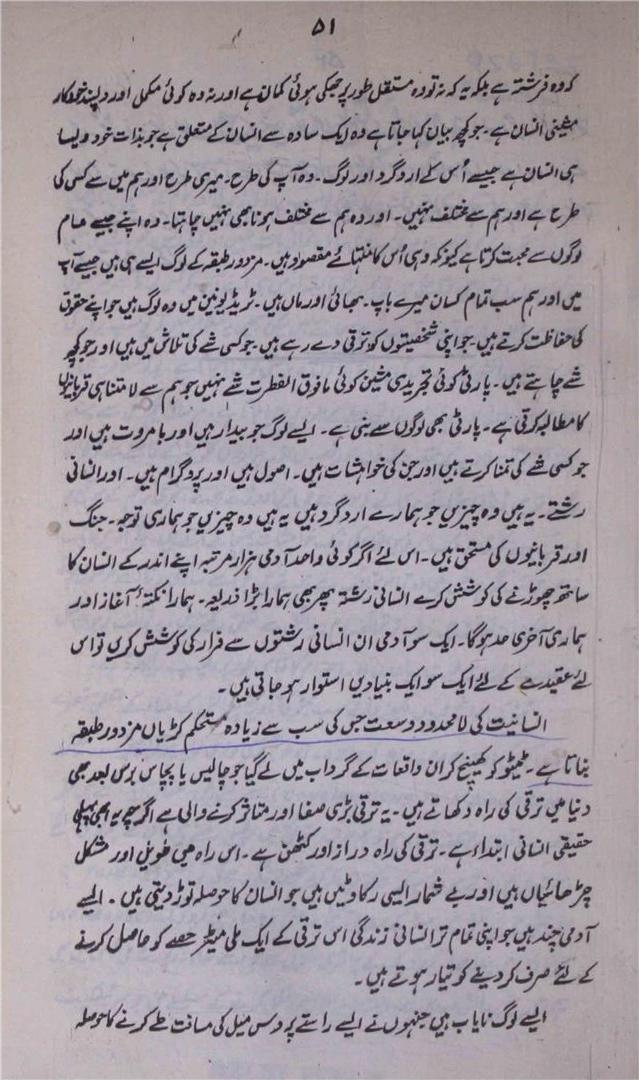 ۵۱
کہ وہ فرشتہ ہے بلکہ یہ کہ نہ تو وہ مستقل طور پر جھکی ہوئی کمان ہے اور نہ وہ کوئی مکمل اور دلپسند خودکار
مشینی انسان ہے۔ جو کچھ بیان کیا جاتا ہے وہ ایک سادہ سے انسان کے متعلق ہے جو بذات خود ویسا
ہی انسان ہے جیسے اُس کے ارد گرد اور لوگ۔ وہ آپ کی طرح۔ میری طرح اور ہم میں سے کسی کی
طرح ہے اور ہم سے مختلف نہیں۔ اور وہ ہم سے مختلف ہونا بھی نہیں چاہتا۔ وہ اپنے جیسے عام
لوگوں سے محبت کرتا ہے کیونکہ وہی اُس کا منتہائے مقصود ہیں۔ مزدور طبقہ کے لوگ ایسے ہی ہیں جیسے آپ
میں اور ہم سب تمام کسان میرے باپ۔ بھائی اور ماں ہیں۔ ٹریڈ یونین میں وہ لوگ ہیں جو اپنے حقوق
کی حفاظت کرتے ہیں۔ جو اپنی شخصیتوں کو ترقی دے رہے ہیں۔ جو کسی شے کی تلاش میں ہیں اور جو کچھ
شے چاہتے ہیں۔ پارٹی کوئی تجریدی مشین کوئی مافوق الفطرت شے نہیں جو ہم سے لامتناہی قربانیوں
کا مطالبہ کرتی ہے۔ پارٹی بھی لوگوں سے بنی ہے۔ ایسے لوگ جو بیدار ہیں اور با مروت ہیں اور
جو کسی شے کی تمنا کرتے ہیں اور جن کی خواہشات ہیں۔ اصول ہیں اور پروگرام ہیں۔ اور انسانی
رشتے۔ یہ ہیں وہ چیزیں جو ہمارے ارد گرد ہیں یہ ہیں وہ چیزیں جو ہماری توجہ۔ جنگ
اور قربانیوں کی مستحق ہیں۔ اس لئے اگر کوئی واحد آدمی ہزار مرتبہ اپنے اندر کے انسان کا
ساتھ چھوڑنے کی کوشش کرے انسانی رشتہ پھر بھی ہمارا بڑا ذریعہ۔ ہمارا نکتۂ آغاز اور
ہماری آخری حد ہو گا۔ ایک سو آدمی ان انسانی رشتوں سے فرار کی کوشش کریں تو اس
لئے عقیدے کے لئے ایک سو ایک بنیادیں استوار ہو جاتی ہیں۔
انسانیت کی لامحدود وسعت جس کی سب سے زیادہ مستحکم کڑیاں مزدور طبقہ
بناتا ہے۔ ٹیٹو کو کھینچ کر ان واقعات کے گرداب میں لے گیا جو چالیس یا پچاس برس بعد بھی
دنیا میں ترقی کی راہ دکھاتے ہیں۔ یہ ترقی بڑی صفا اور متاثر کرنے والی ہے اگرچہ یہ ابھی پہلی
حقیقی انسانی ابتدا ہے۔ ترقی کی راہ دراز اور کٹھن ہے۔ اس راہ میں طویل اور مشکل
چڑھائیاں ہیں اور بے شمار ایسی رکاوٹیں ہیں جو انسان کا حوصلہ توڑ دیتی ہیں۔ ایسے
آدمی چند ہیں جو اپنی تمام تر انسانی زندگی اس ترقی کے ایک ملی میٹر حصے کو حاصل کرنے
کے لئے صرف کر دینے کو تیار ہوتے ہیں۔
ایسے لوگ نایاب ہیں جنہوں نے ایسے راستے پر دس میل کی مسافت طے کرنے کا حوصلہ